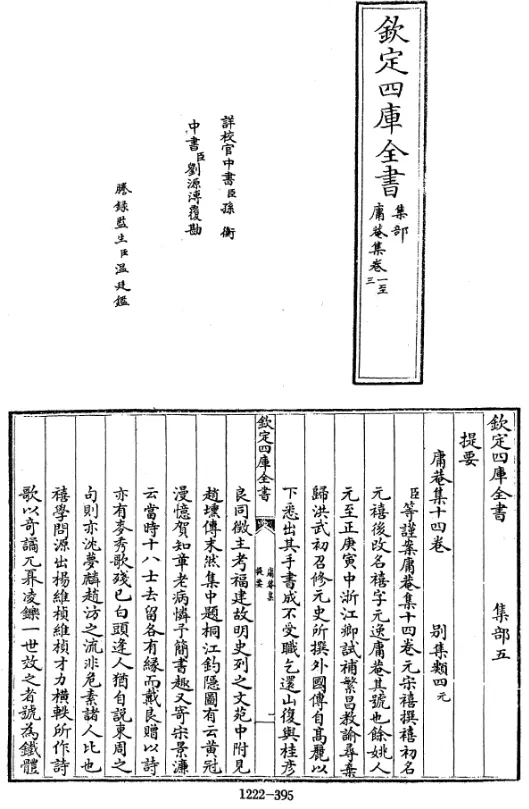 欽定四庫全書
集部
庸菴集卷一至
三
詳校官中書臣孫衡
中書臣劉源溥覆勘
謄錄監生臣溫廷鑑
欽定四庫全書 集部五
提要
庸菴集十四卷 別集類四元
臣等謹案庸菴集十四卷元宋禧撰禧初名
元禧後改名禧字元逸庸菴其號也餘姚人
元至正庚寅中浙江鄉試補繁昌教諭尋棄
歸洪武初召修元史所撰外國傳自髙麗以
下悉出其手書成不受職乞還山復與桂彥
欽定四庫全書
庸菴集
提要
一
良同徴主考福建故明史列之文苑中附見
趙壎傳末然集中題桐江釣隠圖有云黃冠
漫憶賀知章老病憐予簡書趣又寄宋景濂
云當時十八士去留各有緣而戴良贈以詩
亦有麥秀歌殘已白頭逢人猶自說東周之
句則亦沈夢麟趙汸之流非危素諸人比也
禧學問源出楊維楨維楨才力橫軼所作詩
歌以奇譎兀奡凌鑠一世效之者號為鐵體
1222-395